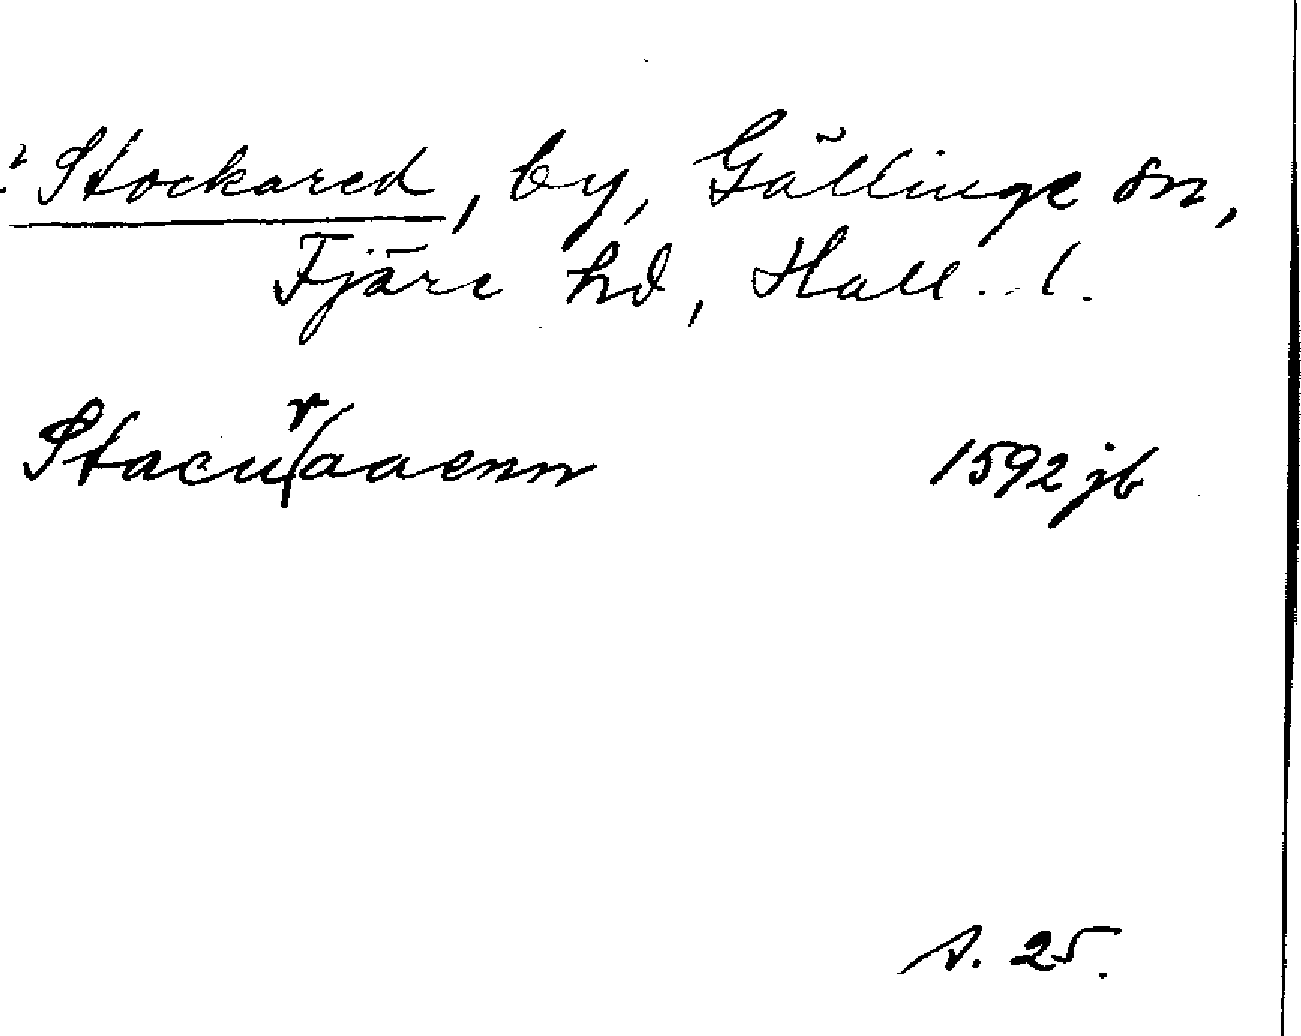 ? Stockared, by, Gällinge sn,
Fjäre hd, Hall. l.
Stacu(raaenn 1592 jb
s. 25.